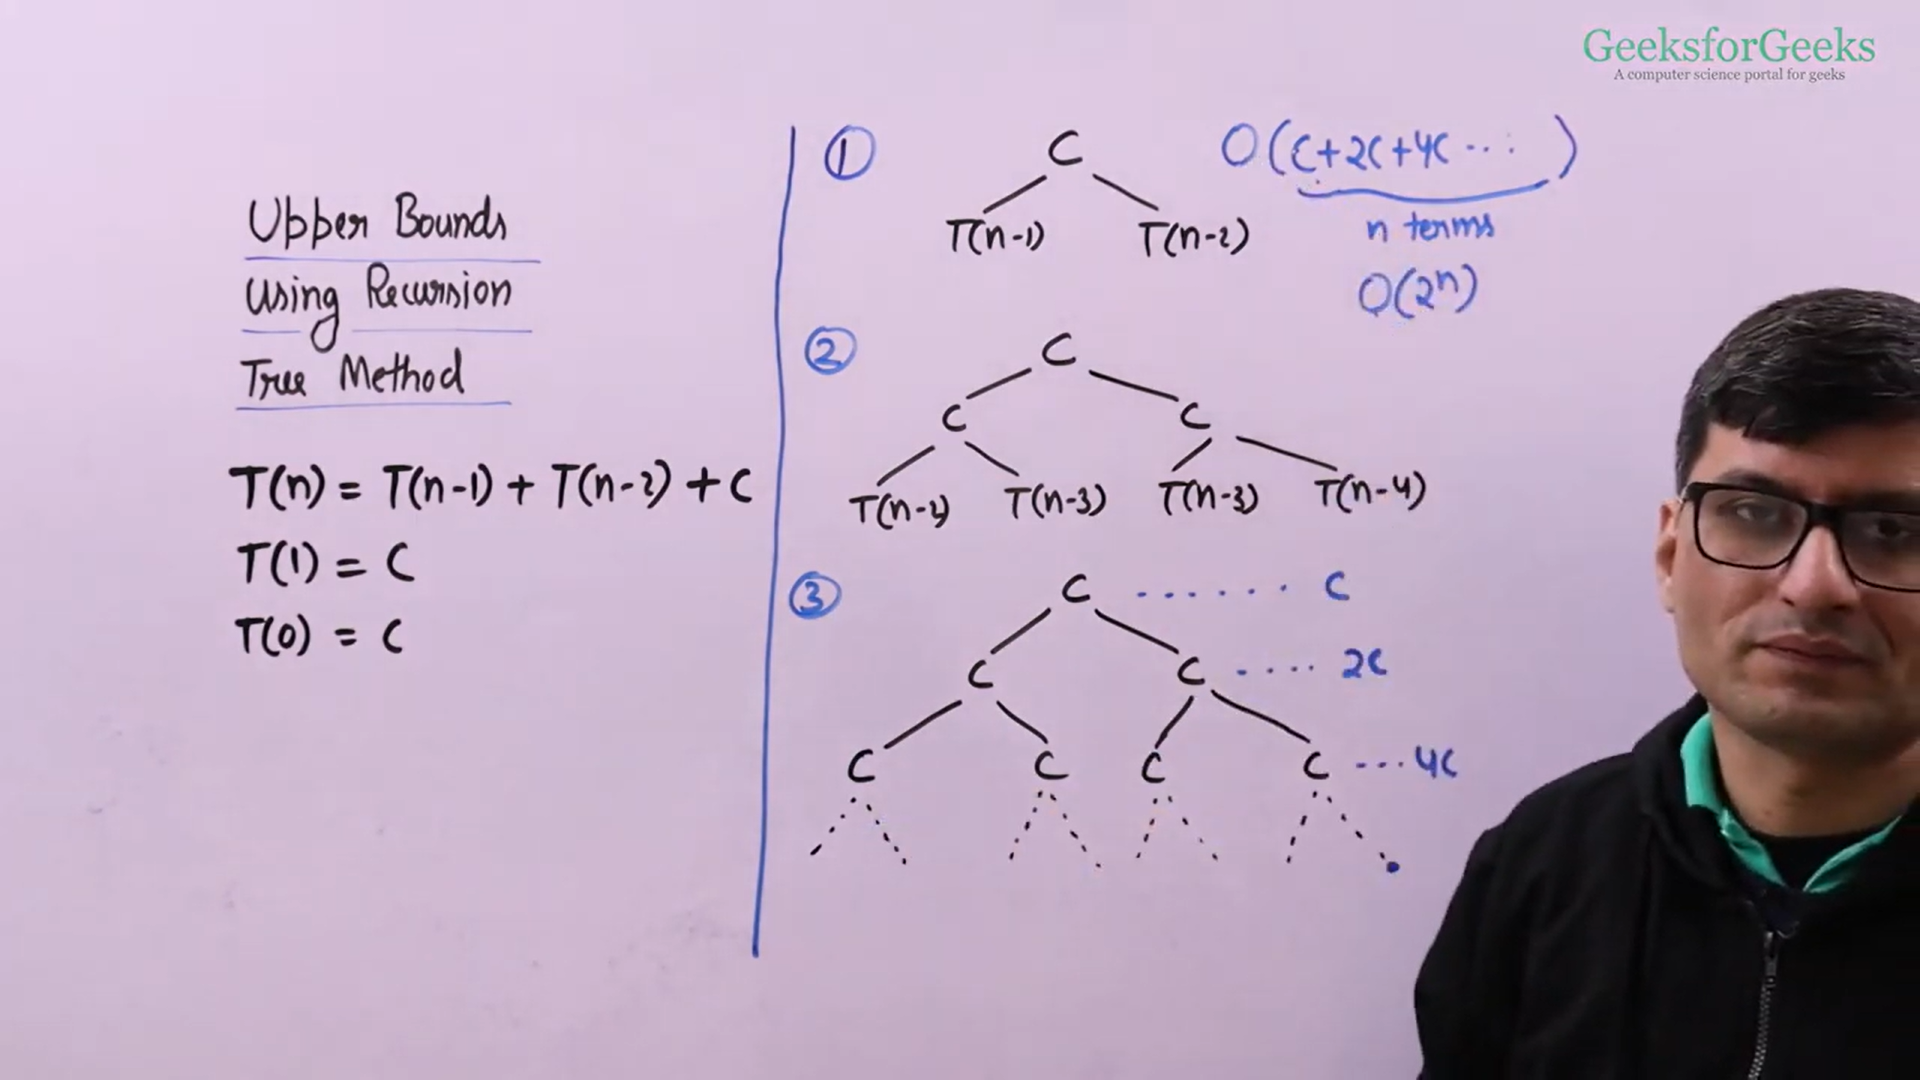 GeeksforGeeks
A computer science portal for geeks
Upper Bounds
Using Recursion
Tree Method
T(n) = T(n-1) + T(n-2) + C
T(1) = C
T(0) = C
①
C
T(n-1) T(n-2)
O(C+2C+4C ....)
n terms
O(2ⁿ)
②
C
C C
T(n-2) T(n-3) T(n-3) T(n-4)
③
C ...... C
C C .... 2C
C C C C ... 4C